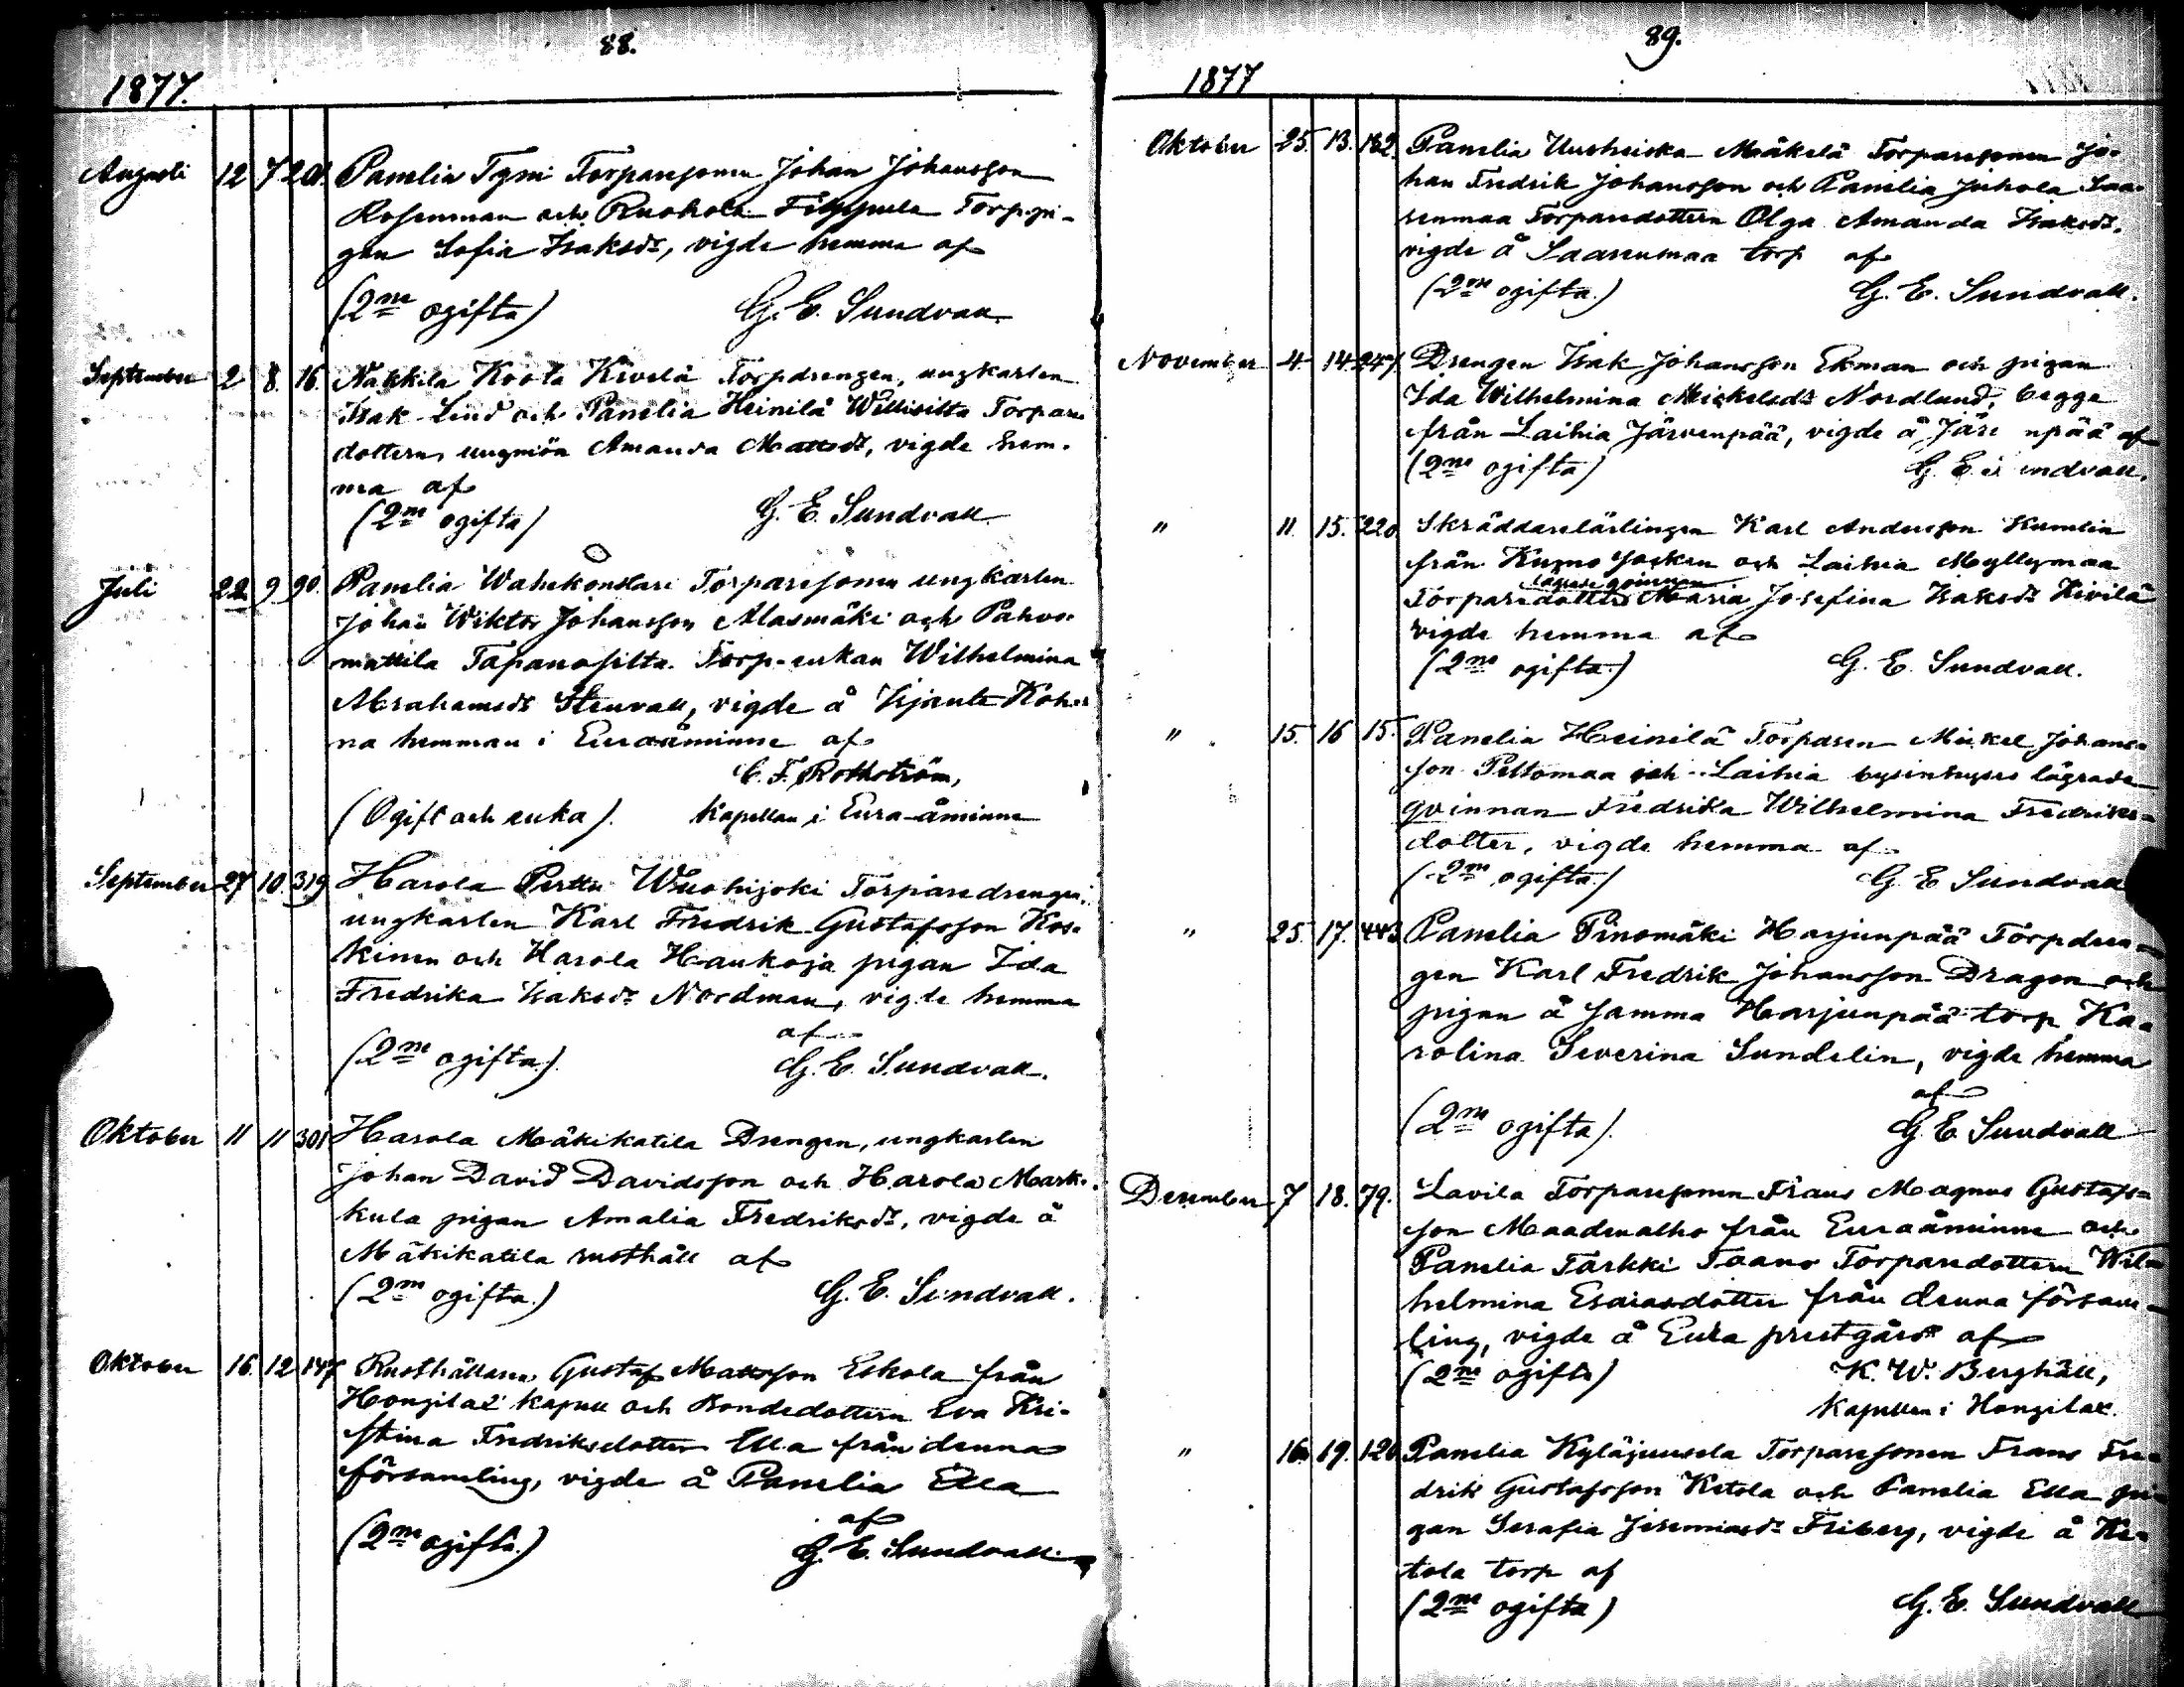 88.
1877.
Augusti 12 7 201. Panelia Tyni Torparesonen Johan Johansson
Rosenman och Ruohola Filppula Torp.pi-
gan Sofia Isaksdr, vigde hemma af
(2ne ogifta) G. E. Sundvall.
September 2 8 16. Nakkila Koota Kivelä Torpdrengen, ungkarlen
Isak Lind och Panelia Heinilä Willisilta Torpare
dottern, ungmön Amanda Mattsdr, vigde hem-
ma af
(2ne ogifta) G. E. Sundvall
Juli 22 9 90. Panelia Torparesonen ungkarlen
Johan Wiktor Johansson Alasmäki och Pahos-
mattila Torp-enkan Wilhelmina
Abrahamsdr Stenvall, vigde å
na hemman i Euraåminne af
C. F. Rothström,
(Ogift och enka). Kapellan i Eura-åminne
September 27 10. 319 Harola Perttu Torparedrengen,
ungkarlen Karl Fredrik Gustafsson Kos-
kinen och Harola Haukoja pigan Ida
Fredrika Isaksdr Nordman, vigde hemma
af
(2ne ogifta). G. E. Sundvall.
Oktober 11 11 301 Harola Mäkikatila Drengen, ungkarlen
Johan David Davidsson och Harola Mark-
kula pigan Amalia Fredriksdr, vigde å
Mäkikatila rusthåll af
(2ne ogifta.) G. E. Sundvall.
Oktober 16. 12 147 Rusthållaren Gustaf Mattsson Eskola från
Hongilax kapell och Bondedottern Eva Kri-
stina Fredriksdotter Ella från denna
församling, vigde å Panelia Ella
af
(2ne ogifta.) G. E. Sundvall.
89.
1877
Oktober 25. 13. 132. Panelia Mäkelä Torparesonen Jo-
han Fredrik Johansson och Panelia Juhola Saa-
renmaa Torparedottern Olga Amanda Isaksdr.
vigde å Saarenmaa torp af
(2ne ogifta.) G. E. Sundvall.
November 4. 14. 247. Drengen Isak Johansson Ekman och pigan
Ida Wilhelmina Mickelsdr Nordlund, begge
från Laihia Järvenpää, vigde å Järvenpää af
(2ne ogifta) G. E. Sundvall.
" 11. 15. 220. Skräddarelärlingen Karl Andersson Kumlin
från Kumo socken och Laihia Myllymaa
lägrade qvinnan
Torparedotter Maria Josefina Isaksdr Kivilä
vigde hemma af
(2ne ogifta.) G. E. Sundvall.
" 15. 16 15. Panelia Heinilä Torparen Mickel Johans-
son Peltomaa och Laihia bysinhyses lägrade
qvinnan Fredrika Wilhelmina Fredriks-
dotter, vigde hemma af
(2ne ogifta.) G. E. Sundvall
" 25. 17. 443. Panelia Pinomäki Harjunpää Torpdren-
gen Karl Fredrik Johansson Dragon och
pigan å samma Harjunpää torp Ka-
rolina Severina Sundelin, vigde hemma
af
(2ne ogifta). G. E. Sundvall
December 7 18. 79. Lavila Torparesonen Frans Magnus Gustafs-
son Maadenalho från Euraåminne och
Panelia Tarkki Torparedottern Wil-
helmina Esaiasdotter från denna försam-
ling, vigde å Eura prestgård af
(2ne ogifta) K. W. Berghäll,
Kapellan i Hongilax.
" 16. 19. 126. Panelia Kyläjuusela Torparesonen Frans Fre-
drik Gustafsson Ketola och Panelia Ella pi-
gan Serafia Jeremiasdr Friberg, vigde å Ke-
tola torp af
(2ne ogifta) G. E. Sundvall